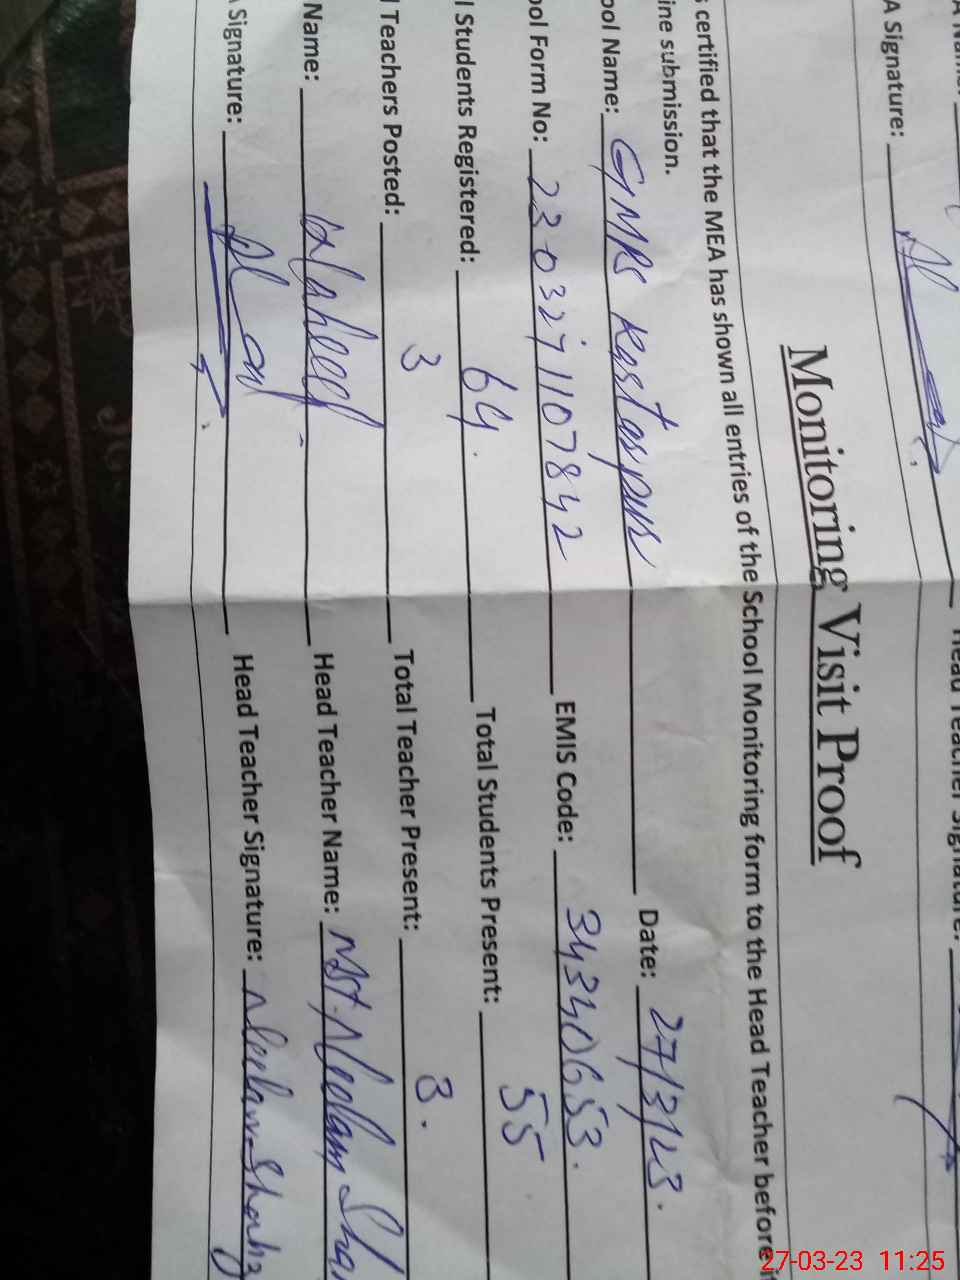 A Signature:
Head Teacher Signature:
Monitoring Visit Proof
s certified that the MEA has shown all entries of the School Monitoring form to the Head Teacher before
ine submission.
ool Name: GMPS Kastaspur Date: 27/3/23.
ool Form No: 230327 1107842 EMIS Code: 34340653.
l Students Registered: 64. Total Students Present: 55
l Teachers Posted: 3 Total Teacher Present: 3.
Name: Head Teacher Name: Mst. Neelam Sha
A Signature: Head Teacher Signature: Neelam Shah
27-03-23 11:25